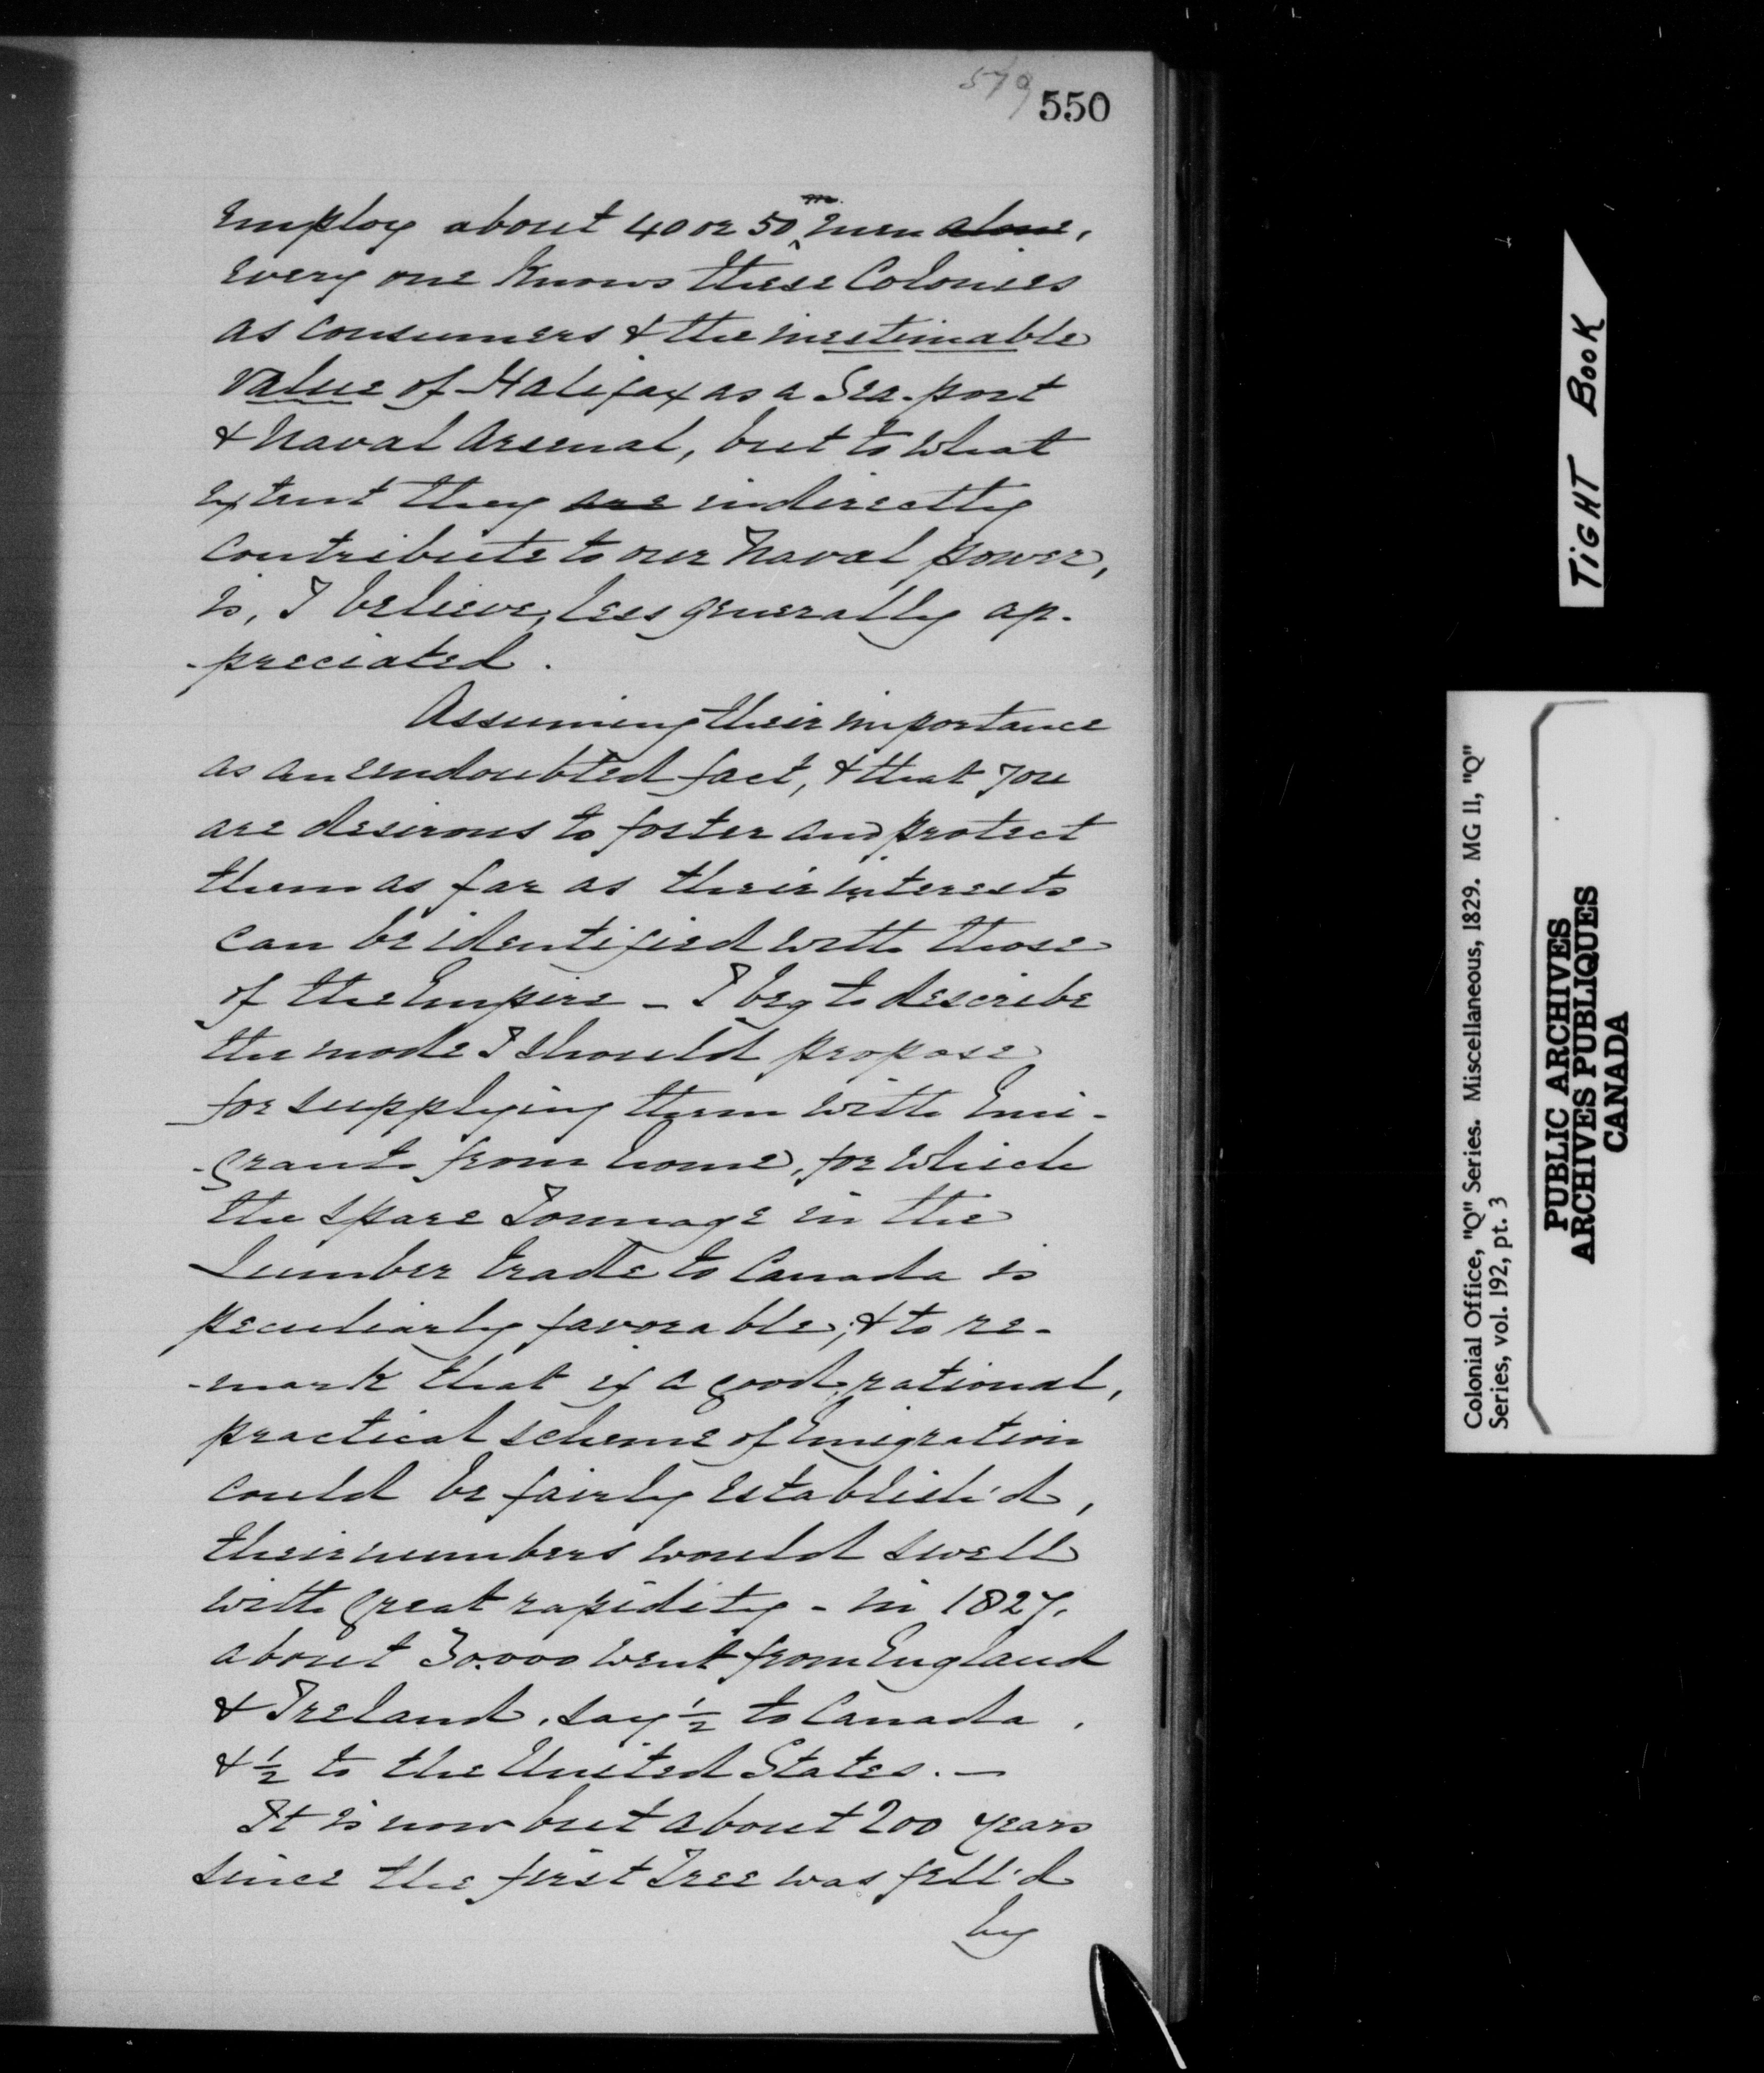 579 550
Employ about 40 or 50 m. men alone,
Every one Knows these Colonies
as consumers & the inestimable
value of Halifax as a Sea-port
& Naval Arsenal, but to what
extent they are indirectly
contribute to our Naval power,
is, I believe, less generally ap-
-preciated.
Assuming their importance
as an undoubted fact, & that you
are desirous to foster and protect
them as far as their interests
can be identified with those
of the Empire - I beg to describe
the mode I should propose
for supplying them with Emi-
-grants from home, for which
the spare Tonnage in the
Lumber trade to Canada is
peculiarly favorable; & to re-
-mark that if a good, rational,
practical scheme of Emigration
could be fairly establish'd,
their numbers would swell
with great rapidity - in 1827,
about 30.000 went from England
& Ireland, say ½ to Canada,
& ½ to the United States. -
It is now but about 200 years
since the first Tree was fell'd
by
TIGHT BOOK
Colonial Office, "Q" Series. Miscellaneous, 1829. MG 11, "Q"
Series, vol. 192, pt. 3
PUBLIC ARCHIVES
ARCHIVES PUBLIQUES
CANADA